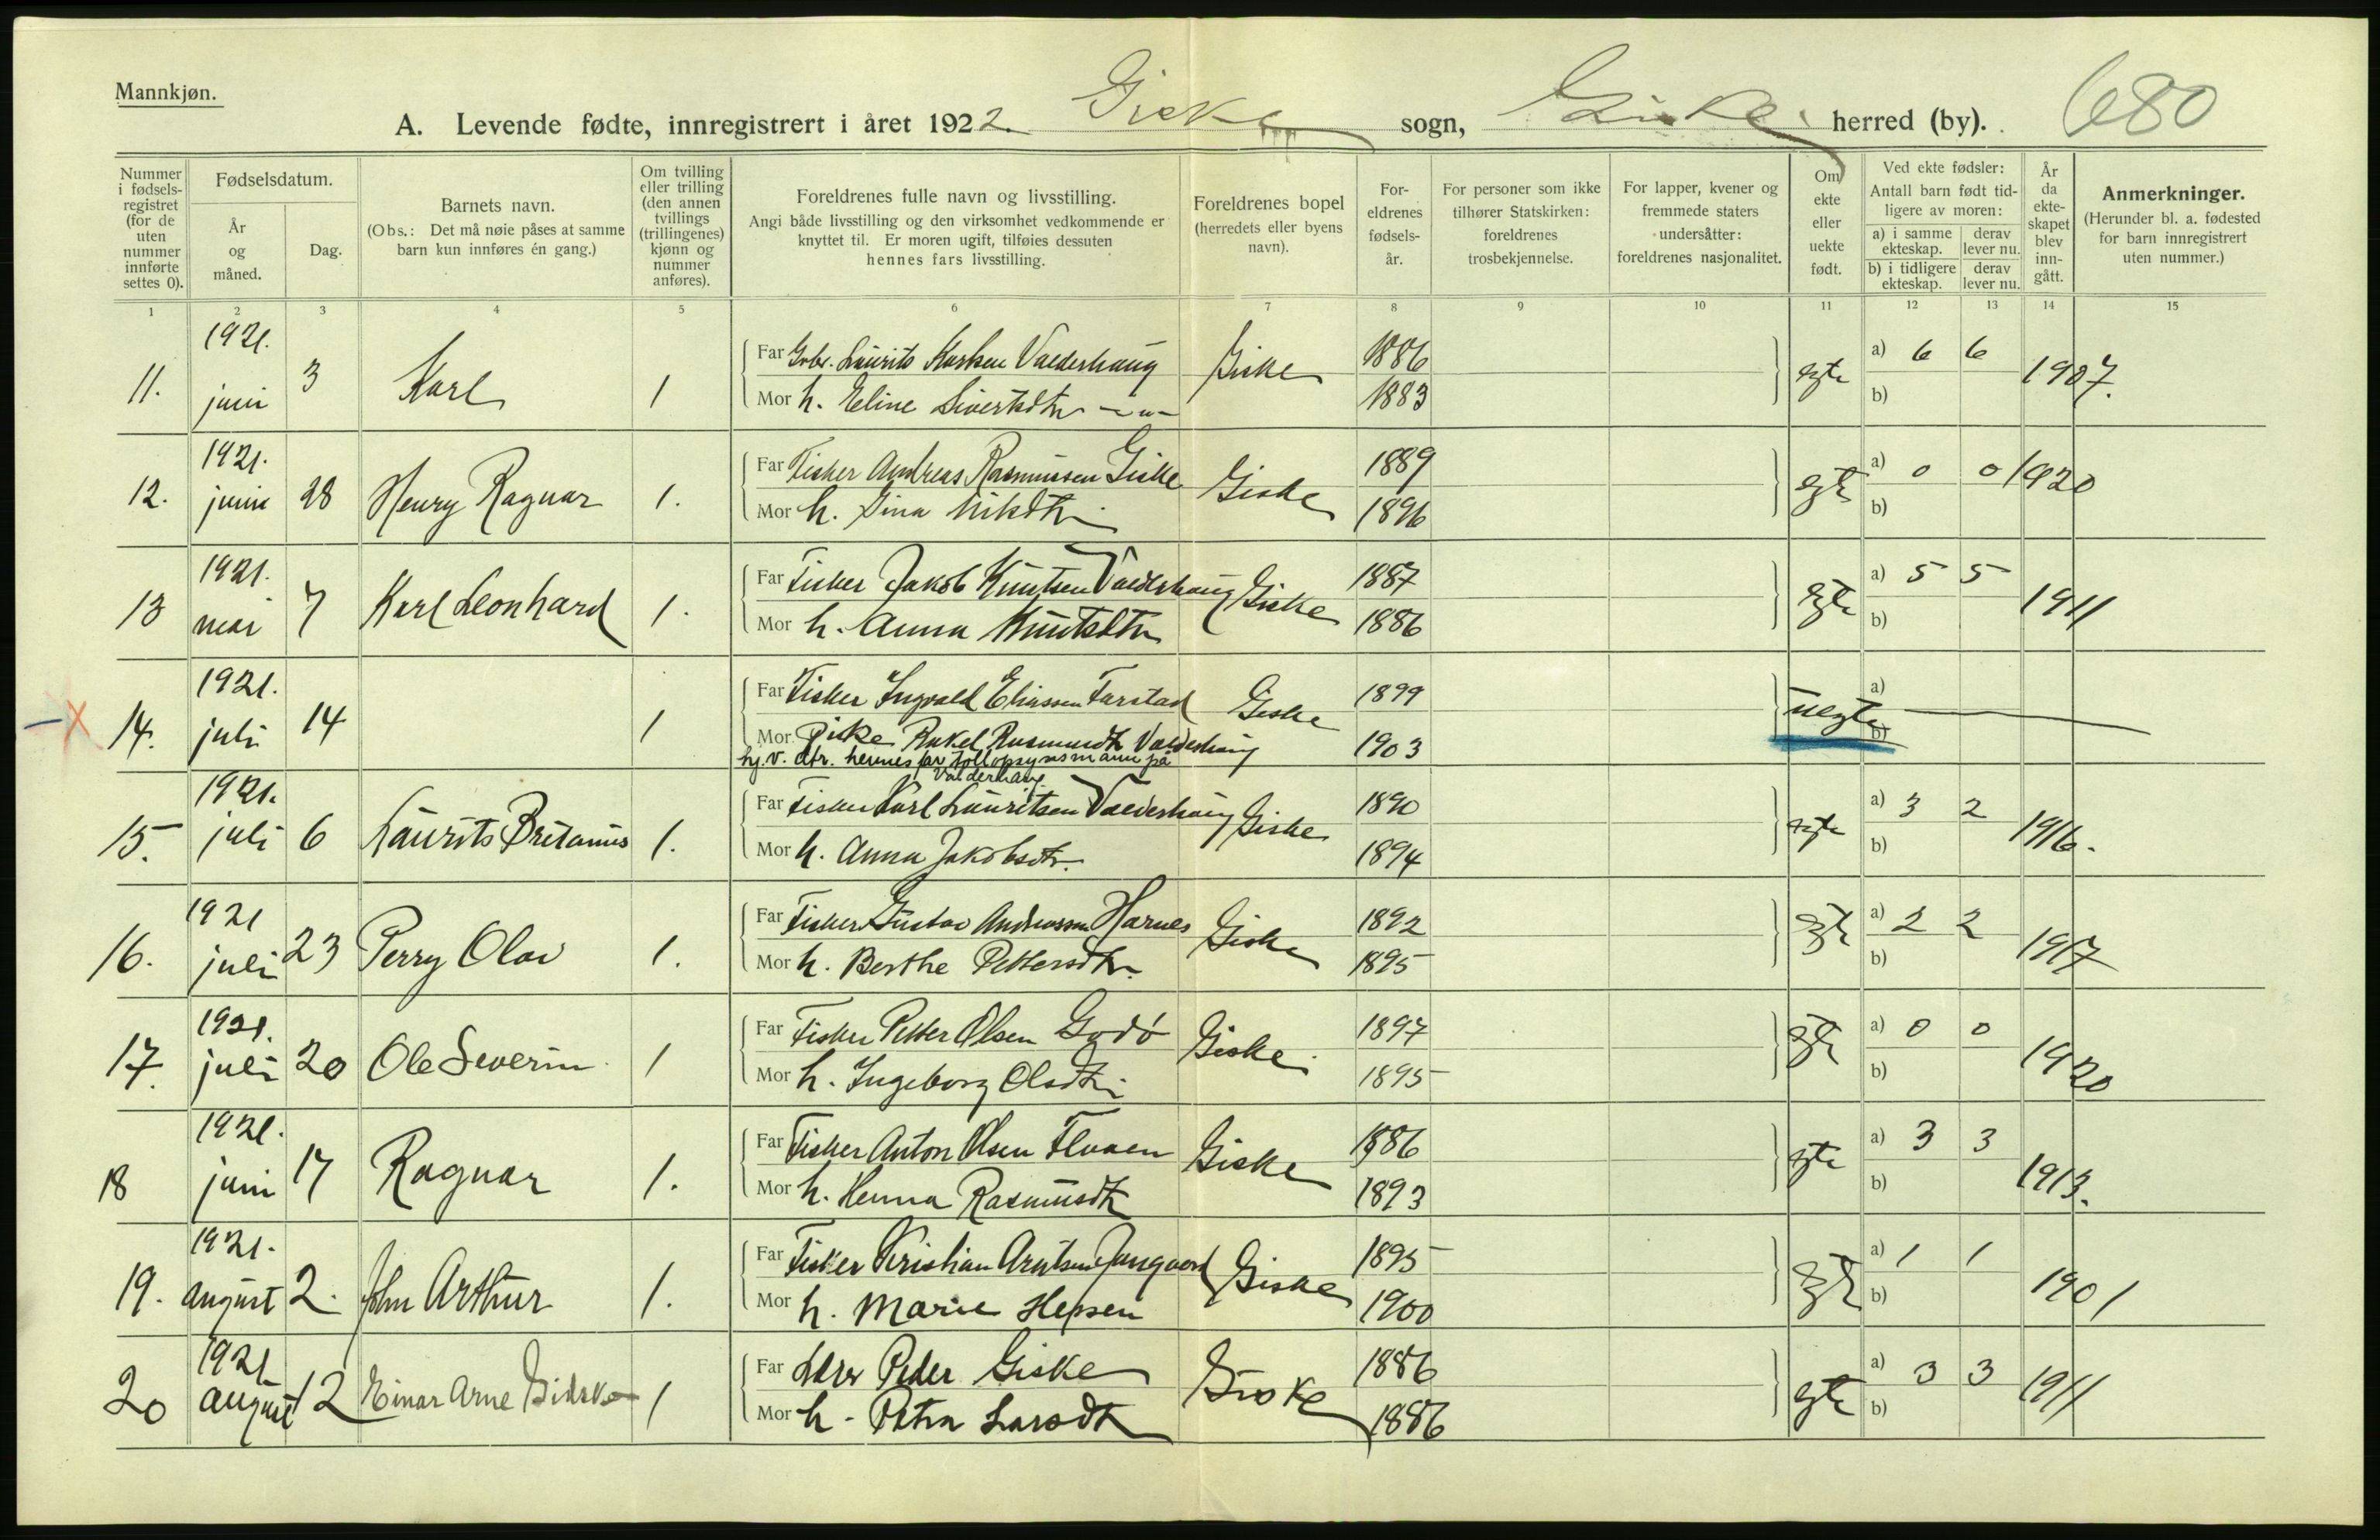 Mannkjøn.
A. Levende fødte, innregistrert i året 1922. Giske sogn, Giske herred (by). 680
Nummer i fødsels-registret (for de uten nummer innførte settes 0).
Fødselsdatum.
År og måned.
Dag.
Barnets navn.
(Obs.: Det må nøie påses at samme barn kun innføres én gang.)
Om tvilling eller trilling (den annen tvillings (trillingenes) kjønn og nummer anføres).
Foreldrenes fulle navn og livsstilling.
Angi både livsstilling og den virksomhet vedkommende er knyttet til. Er moren ugift, tilføies dessuten hennes fars livsstilling.
Foreldrenes bopel (herredets eller byens navn).
For-eldrenes fødsels-år.
For personer som ikke tilhører Statskirken: foreldrenes trosbekjennelse.
For lapper, kvener og fremmede staters undersåtter: foreldrenes nasjonalitet.
Om ekte eller uekte født.
Ved ekte fødsler: Antall barn født tid-ligere av moren:
a) i samme ekteskap. derav lever nu.
b) i tidligere ekteskap. derav lever nu.
År da ekte-skapet blev inn-gått.
Anmerkninger.
(Herunder bl. a. fødested for barn innregistrert uten nummer.)
1 2 3 4 5 6 7 8 9 10 11 12 13 14 15
11. 1921. juni 3 Karl 1 Far Laurits Valderhaug Giske 1886 egte a) 6 6 1907.
Mor h. Eline Sivertsdtr —"— 1883 b)
12. 1921. juni 28 Henry Ragnar 1. Far Fisker Andreas Rasmussen Giske Giske 1889 egte a) 0 0 1920
Mor h. 1896 b)
13 1921. mai 7 Karl Leonhard 1. Far Fisker Jakob Knutsen Valderhaug Giske 1887 egte a) 5 5 1911
Mor h. Anna Knutsdtr 1886 b)
14. 1921. juli 14 1 Far Fisker Ingvald Eliassen Farstad Giske 1899 uegte a)
Mor Pike Rakel Rasmusdtr Valderhaug 1903 b)
hj. v. dtr. hennes far tollopsynsmann på Valderhaug.
15. 1921. juli 6 Laurits Britanus 1. Far Fisker Karl Lauritsen Valderhaug Giske 1890 egte a) 3 2 1916.
Mor h. Anna Jakobsdtr. 1894 b)
16. 1921 juli 23 Perry Olav 1. Far Fisker Gustav Andreassen Harnes Giske 1892 egte a) 2 2 1917
Mor h. Berthe Pettersdtr. 1895 b)
17. 1921. juli 20 Ole Severin 1 Far Fisker Petter Olsen Godø Giske 1897 egte a) 0 0 1920
Mor h. Ingeborg Olsdtr. 1895 b)
18 1921. juni 17 Ragnar 1. Far Fisker Anton Olsen Giske 1886 egte a) 3 3 1913.
Mor h. Henna Rasmusdtr 1893 b)
19. 1921. august 2. John Arthur 1. Far Fisker Kristian Giske 1895 egte a) 1 1 1901
Mor h. Marie 1900 b)
20 1921 august 12 Einar Arne 1 Far Lærer Peder Giske Giske 1886 egte a) 3 3 1911
Mor h. Petra Larsdtr 1886 b)